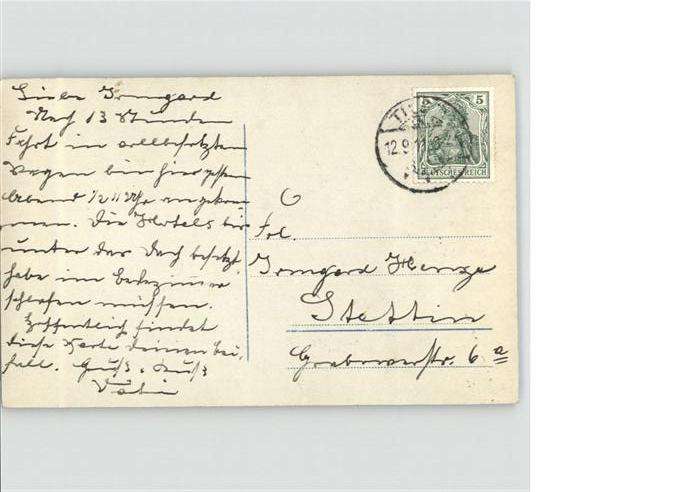 Liebe Irmgard
Nach 13 Stunden
Fahrt in vollbesetzten
Wagen bin hier gestern
Abend ½ 11 Uhr angekom
men. Die Hotels bis
unter das Dach besetzt
habe im Badezimmer
schlafen müssen.
Hoffentlich findet
diese Karte deinen Bei-
fall. Gruß u. Kuß
12.9.
5 5
DEUTSCHES REICH
Frl.
Irmgard Henze
Stettin
Grabowerstr. 6 a